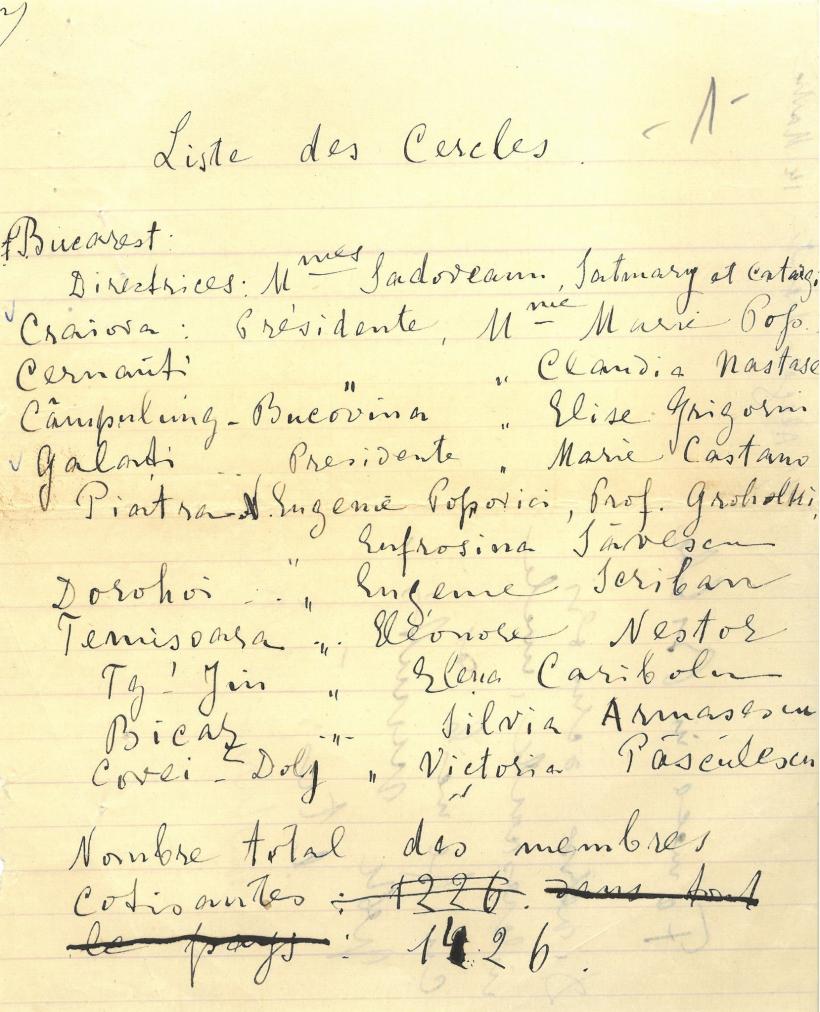 - 1 -
Liste des Cercles.
Bucarest:
Directrices: Mmes Sadoveanu, Satmary et Catargi
Craiova: Présidente, Mme Marie Pop.
Cernaŭti " " Claudia Nastase
Câmpulung - Bucovina " Elise Grigoriu
Galatzi .. Presidente " Marie Castano
Piatra N. Eugenie Popovici, Prof. Groholski,
" Eufrosina Săvescu
Dorohoi .. " Eugenie Scriban
Temisoara " Eléonore Nestor
Tg! Jiu " Elena Caribolu
Bicaz -"- Silvia Armasescu
Covei - Dolj " Victoria Păsculescu
Nombre total des membres
cotisantes : 1226. dans tout
le pays : 1426.